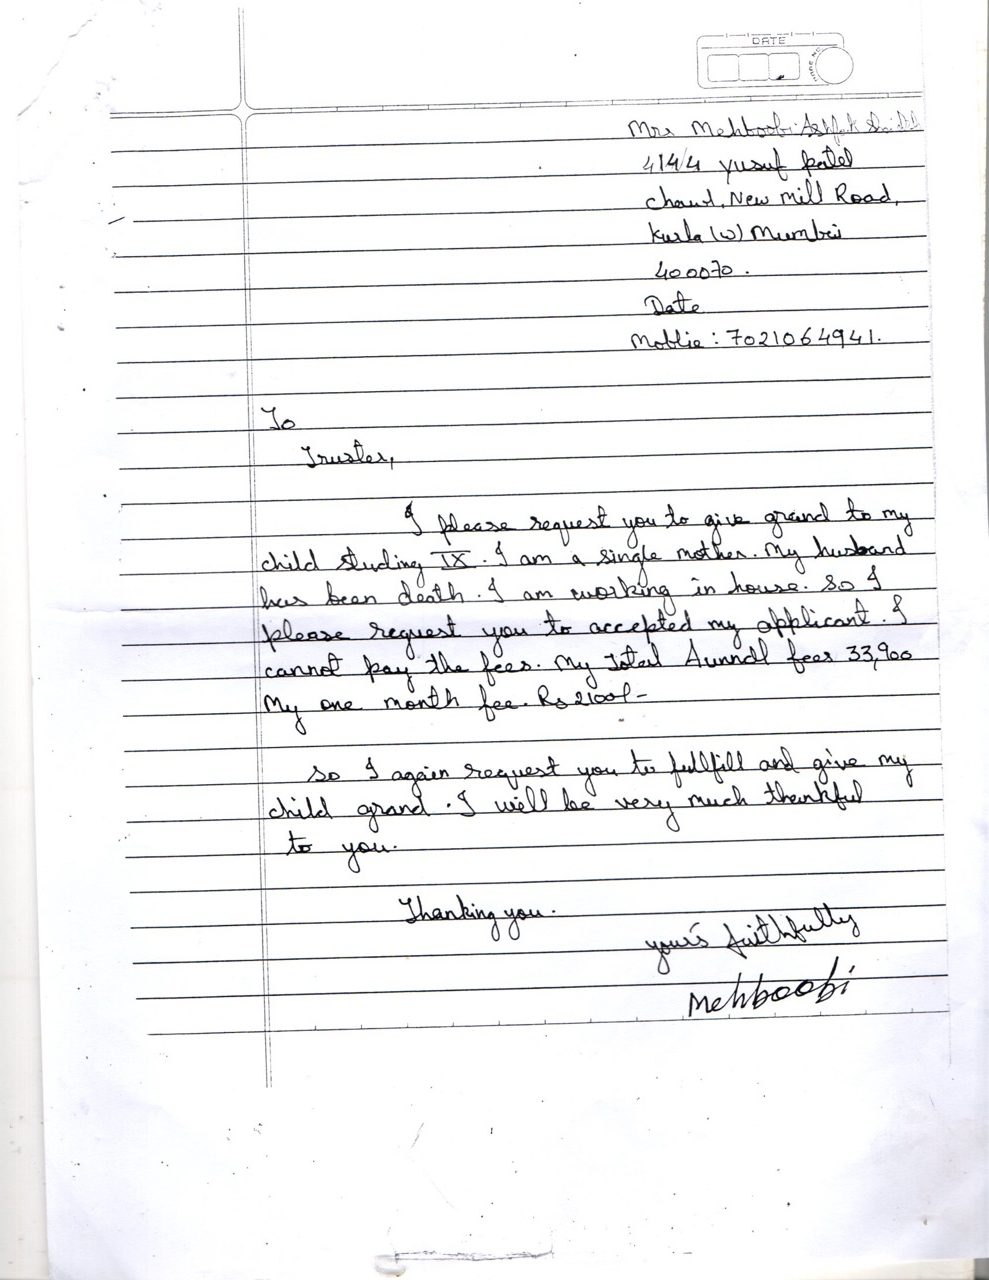 DATE
PAGE NO
Mrs Mehboobi Ashfak
414/4 Yusuf Patel
chawl, New Mill Road,
Kurla (W) Mumbai
400070.
Date
Moblie: 7021064941.
To
Trustee,
I please request you to give grand to my
child studing IX. I am a single mother. My husband
has been death. I am working in house. So I
please request you to accepted my applicant. I
cannot pay the fees. My Total Aunndl fees 33,900
My one month fee. Rs 2100/-
So I again request you to fullfill and give my
child grand. I will be very much thankful
to you.
Thanking you.
your's faithfully
Mehboobi